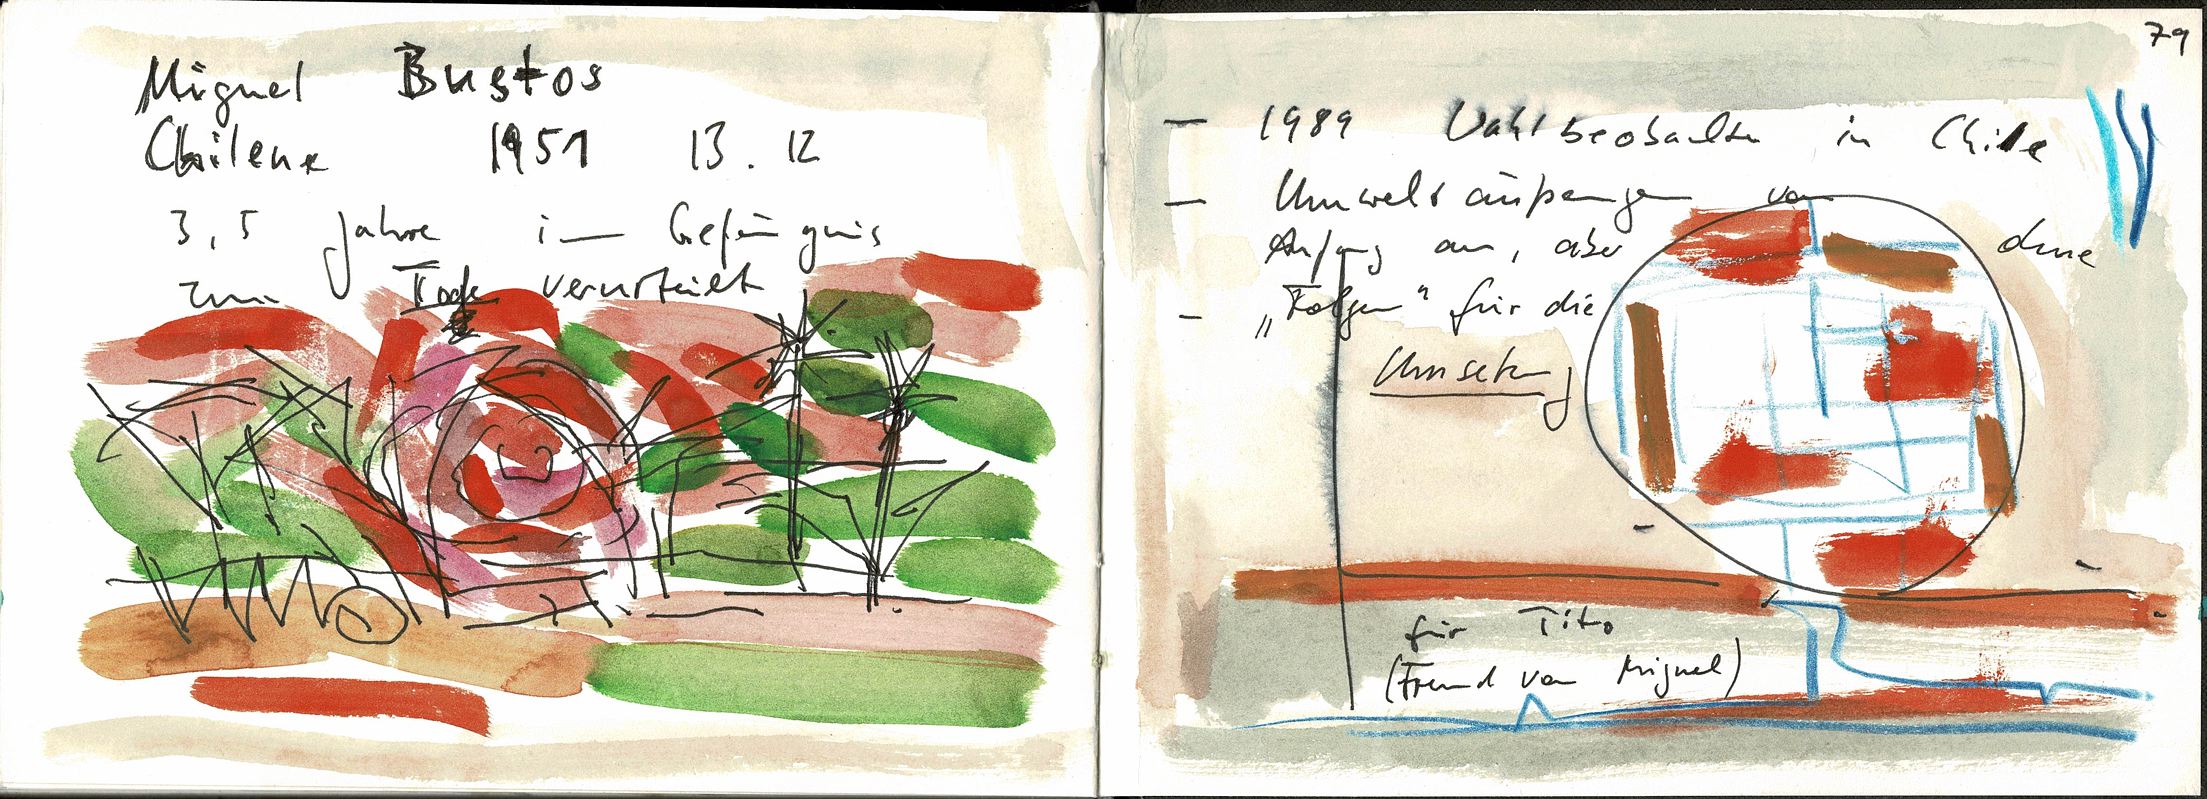 Miguel Bustos
Chilene 1951 13.12
3,5 Jahre im Gefängnis
zum Tode verurteilt
79
— 1989 Wahlbeobachter in Chile
— Umwelt von
Anfang an, aber ohne
- „Folgen" für die
Umsetzung
für Tito
(Freund von Miguel)